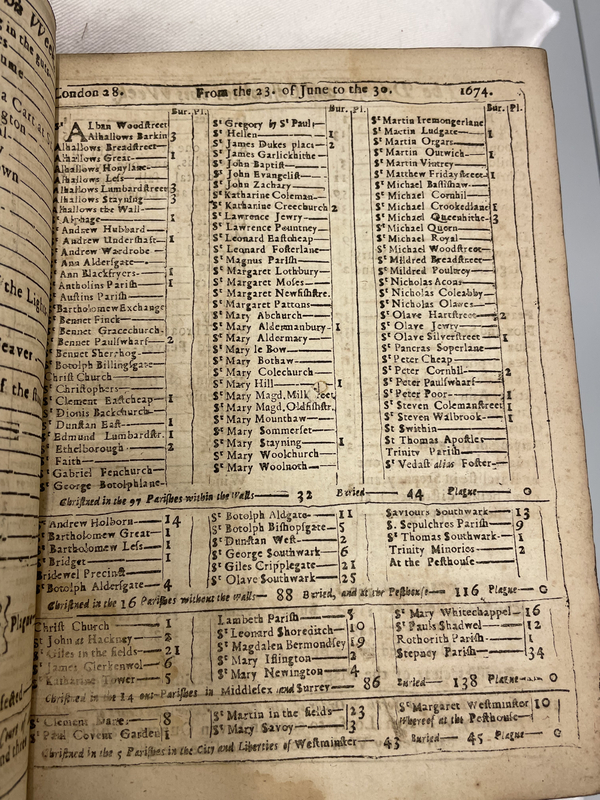 London 28. From the 23. of June to the 30. 1674.
Bur. Pl.
St Alban Woodstreet
Alhallows Barkin 3
Alhallows Breadstreet
Alhallows Great 1
Alhallows Honylane
Alhallows Less
Alhallows Lumbardstreet 3
Alhallows Stayning 3
Alhallows the Wall
St Alphage 1
St Andrew Hubbard
St Andrew Undershaft 1
St Andrew Wardrobe
St Ann Aldersgate
St Ann Blackfryers 1
St Antholins Parish 1
St Austins Parish
St Bartholomew Exchange
St Bennet Finck
St Bennet Gracechurch
St Bennet Paulswharf 2
St Bennet Sherehog
St Botolph Billingsgate
Christ Church 1
St Christophers
St Clement Eastcheap 1
St Dionis Backchurch
St Dunstan East 1
St Edmund Lumbardstr. 1
St Ethelborough 2
St Faith
St Gabriel Fenchurch
St George Botolphlane
Bur. Pl.
St Gregory by St Paul
St Hellen 1
St James Dukes place 2
St James Garlickhithe
St John Baptist
St John Evangelist
St John Zachary
St Katharine Coleman
St Katharine Creechurch 2
St Lawrence Jewry
St Lawrence Pountney
St Leonard Eastcheap
St Leonard Fosterlane
St Magnus Parish
St Margaret Lothbury
St Margaret Moses
St Margaret Newfishstre.
St Margaret Pattons
St Mary Abchurch
St Mary Aldermanbury 1
St Mary Aldermary
St Mary le Bow
St Mary Bothaw
St Mary Colechurch
St Mary Hill 1
St Mary Magd. Milk
St Mary Magd. Oldfishstr.
St Mary Mounthaw
St Mary Sommerset
St Mary Stayning 1
St Mary Woolchurch
St Mary Woolnoth
Bur. Pl.
St Martin Iremongerlane
St Martin Ludgate 1
St Martin Orgars
St Martin Outwich 1
St Martin Vintrey
St Matthew Fridaystreet 1
St Michael Bassishaw
St Michael Cornhil
St Michael Crookedlane 1
St Michael Queenhithe 3
St Michael Quern
St Michael Royal
St Michael Woodstreet
St Mildred Breadstreet
St Mildred Poultrey
St Nicholas Acons
St Nicholas Coleabby
St Nicholas Olaves
St Olave Hartstreet 2
St Olave Jewry
St Olave Silverstreet 1
St Pancras Soperlane
St Peter Cheap
St Peter Cornhil 2
St Peter Paulswharf
St Peter Poor 1
St Steven Colemanstreet 1
St Steven Walbrook 1
St Swithin
St Thomas Apostles
Trinity Parish
St Vedast alias Foster
Christned in the 97 Parishes within the Walls 32 Buried 44 Plague 0
St Andrew Holborn 14
St Bartholomew Great 1
St Bartholomew Less 1
St Bridget 1
Bridewel Precinct
St Botolph Aldersgate 4
St Botolph Aldgate 11
St Botolph Bishopsgate 5
St Dunstan West 2
St George Southwark 6
St Giles Cripplegate 21
St Olave Southwark 25
Saviours Southwark 13
S. Sepulchres Parish 9
St Thomas Southwark 1
Trinity Minories 2
At the Pesthouse
Christned in the 16 Parishes without the Walls 88 Buried, and at the Pesthouse 116 Plague 0
Christ Church 1
St John at Hackney 2
St Giles in the fields 21
St James Clerkenwol 6
St Katharine Tower 5
Lambeth Parish 5
St Leonard Shoreditch 10
St Magdalen Bermondsey 19
St Mary Islington 2
St Mary Newington 4
St Mary Whitechappel 16
St Pauls Shadwel 12
Rothorith Parish 1
Stepney Parish 34
Christned in the 14 out-Parishes in Middlesex and Surrey 86 Buried 138 Plague 0
St Clement Danes 8
St Paul Covent Garden 1
St Martin in the fields 23
St Mary Savoy 3
St Margaret Westminster 10
Whereof at the Pesthouse
Christned in the 5 Parishes in the City and Liberties of Westminster 43 Buried 45 Plague 0